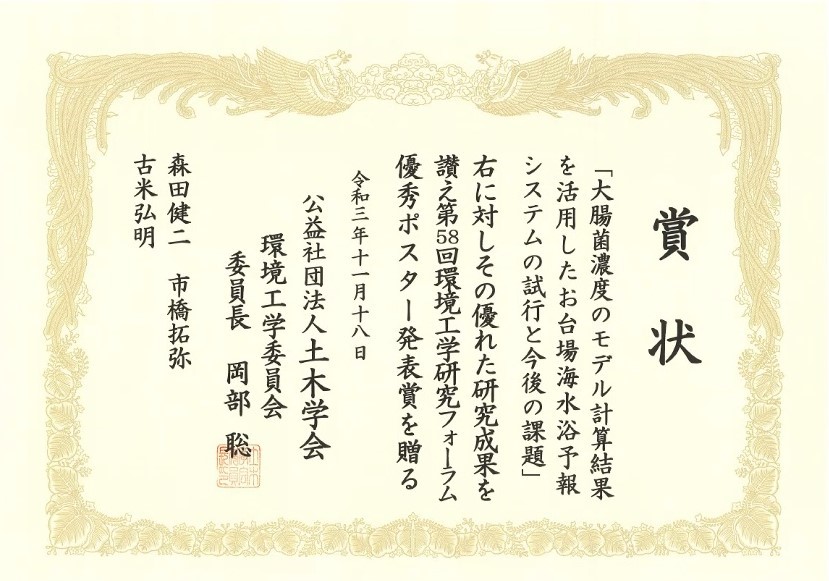 賞状
「大腸菌濃度のモデル計算結果
を活用したお台場海水浴予報
システムの試行と今後の課題」
右に対しその優れた研究成果を
讃え第58回環境工学研究フォーラム
優秀ポスター発表賞を贈る
令和三年十一月十八日
公益社団法人土木学会
環境工学委員会
委員長 岡部 聡
森田健二 市橋拓弥
古米弘明